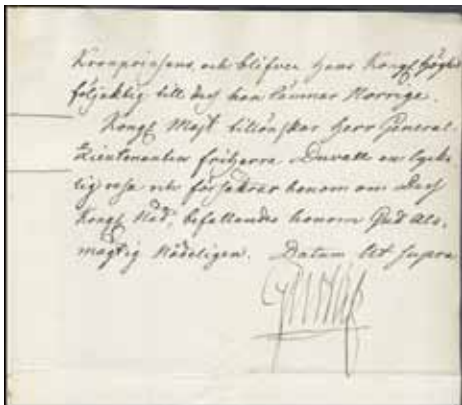 Kronprinsens, och blifver Hans Kongl Höght
följaktig till dess han lämnar Norrige.
Kongl Majt tillönskar Herr General-
Lieutenanten friherre Duvall en lyck-
lig resa och försäkrar honom om Dess
Kongl Nåd, befallandes honom Gud als-
mägtig Nådeligen. Datum Ut supra
Gustaf